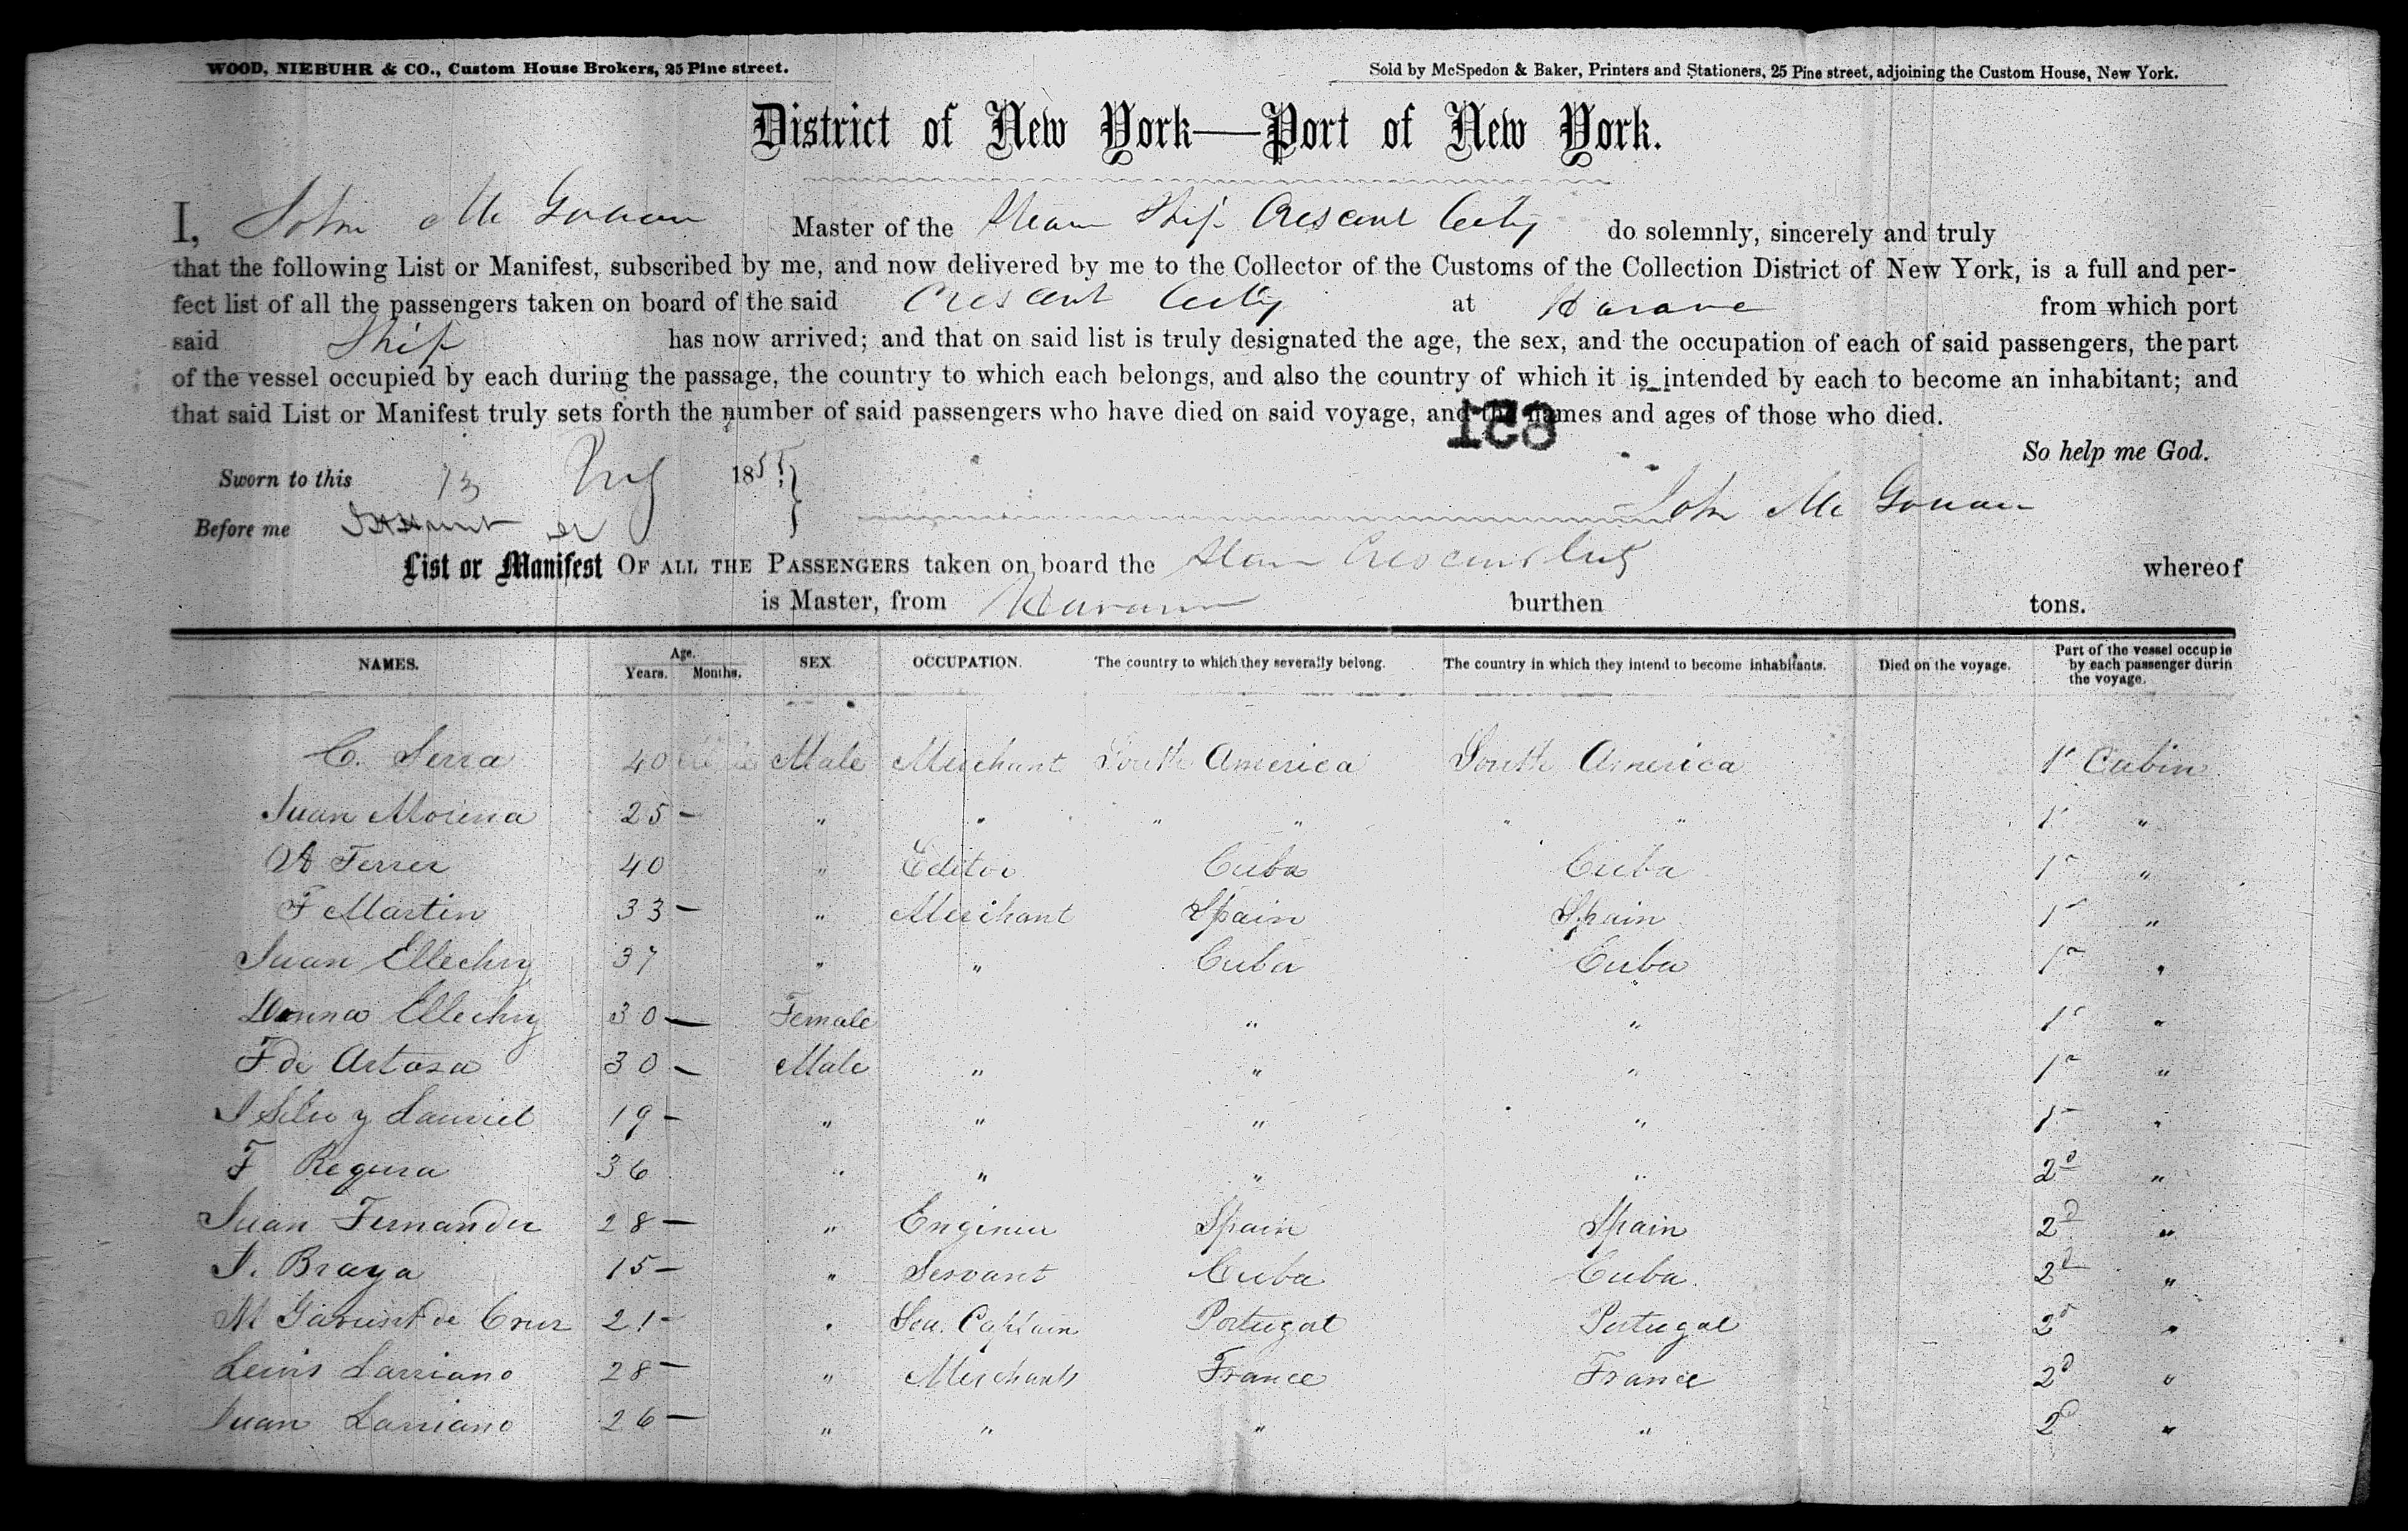 WOOD, NIEBUHR & CO., Custom House Brokers, 25 Pine street. Sold by McSpedon & Baker, Printers and Stationers, 25 Pine street, adjoining the Custom House, New York.
District of New York—Port of New York.
I, John Mc Gowan Master of the Steam Ship Crescent City do solemnly, sincerely and truly
that the following List or Manifest, subscribed by me, and now delivered by me to the Collector of the Customs of the Collection District of New York, is a full and per-
fect list of all the passengers taken on board of the said Crescent City at Havana from which port
said Ship has now arrived; and that on said list is truly designated the age, the sex, and the occupation of each of said passengers, the part
of the vessel occupied by each during the passage, the country to which each belongs, and also the country of which it is intended by each to become an inhabitant; and
that said List or Manifest truly sets forth the number of said passengers who have died on said voyage, and the names and ages of those who died.
So help me God.
Sworn to this 13 1855
John Mc Gowan
Before me
List or Manifest OF ALL THE PASSENGERS taken on board the Steam Crescent City whereof
is Master, from Havana burthen tons.
NAMES. Age. Years. Months. SEX. OCCUPATION. The country to which they severally belong. The country in which they intend to become inhabitants. Died on the voyage. Part of the vessel occupie by each passenger durin the voyage.
C. Serra 40 Male Merchant South America South America 1st Cabin
Juan Morena 25 — " " " " " " 1st "
A Ferrer 40 " Editor Cuba Cuba 1st "
F Martin 33 — " Merchant Spain Spain 1st "
Juan Ellechy 37 " " Cuba Cuba 1st "
Donna Ellechy 30 — Female " " 1st "
F de Artosa 30 — Male " " " 1st "
19 — " " " " 1st "
F Regura 36 " " " " 2d "
Juan Fernander 28 — " Enginer Spain Spain 2d "
J. Braya 15 — " Servant Cuba Cuba. 2d "
M de Cruz 21 — " Sea. Captain Portugal Portugal 2d "
Lewis Larriano 28 — " Merchants France France 2d "
Juan Larriano 26 — " " " " 2d "